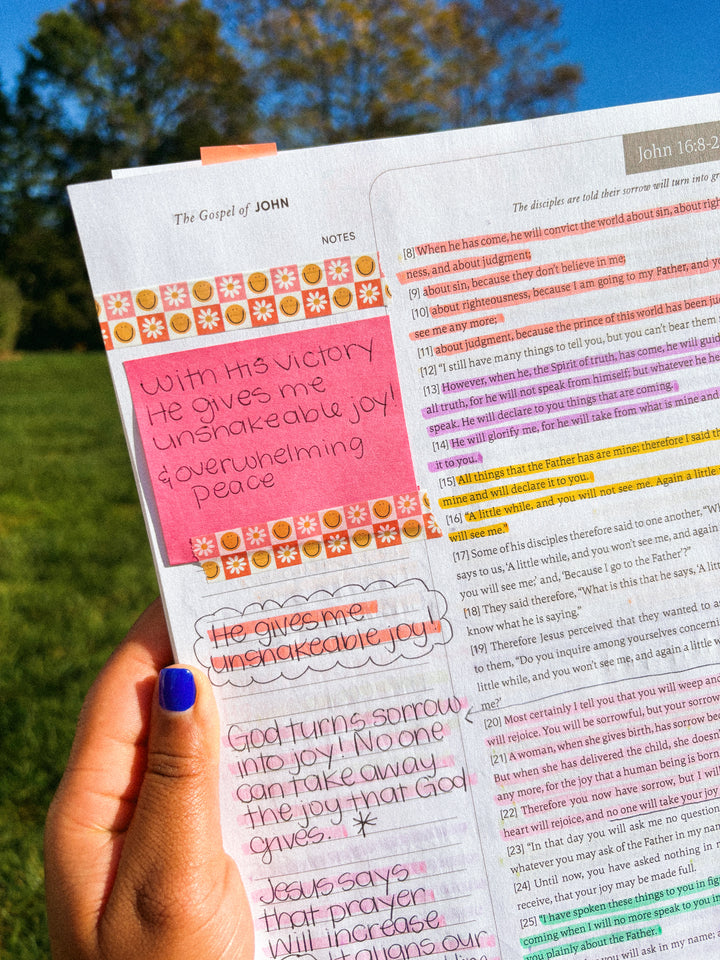 The Gospel of JOHN
NOTES
With His victory
He gives me
unshakeable joy!
& overwhelming
peace
He gives me
unshakeable joy!
God turns sorrow
into joy! No one
can take away
the joy that God
gives. *
Jesus says
that prayer
will increase
aligns our
John 16:8-2
The disciples are told their sorrow will turn into
[8] When he has come, he will convict the world about sin, about
ness, and about judgment;
[9] about sin, because they don't believe in me;
[10] about righteousness, because I am going to my Father, and
see me any more;
[11] about judgment, because the prince of this world has been
[12] "I still have many things to tell you, but you can't bear them
[13] However, when he, the Spirit of truth, has come, he will
all truth, for he will not speak from himself; but whatever he
speak. He will declare to you things that are coming.
[14] He will glorify me, for he will take from what is mine and
it to you.
[15] All things that the Father has are mine; therefore I said
mine and will declare it to you.
[16] "A little while, and you will not see me. Again a little
will see me."
[17] Some of his disciples therefore said to one another,
says to us, 'A little while, and you won't see me, and again
you will see me;' and, 'Because I go to the Father'?"
[18] They said therefore, "What is this that he says, 'A
know what he is saying."
[19] Therefore Jesus perceived that they wanted to
to them, "Do you inquire among yourselves
little while, and you won't see me, and again a little
me?'
[20] Most certainly I tell you that you will weep and
will rejoice. You will be sorrowful, but your sorrow
[21] A woman, when she gives birth, has sorrow
But when she has delivered the child, she
any more, for the joy that a human being is born
[22] Therefore you now have sorrow, but I will
heart will rejoice, and no one will take your joy
[23] "In that day you will ask me no
whatever you may ask of the Father in my
[24] Until now, you have asked nothing in
receive, that your joy may be made full.
[25] "I have spoken these things to you in
coming when I will no more speak to you in
you plainly about the Father.
you will ask in my name;